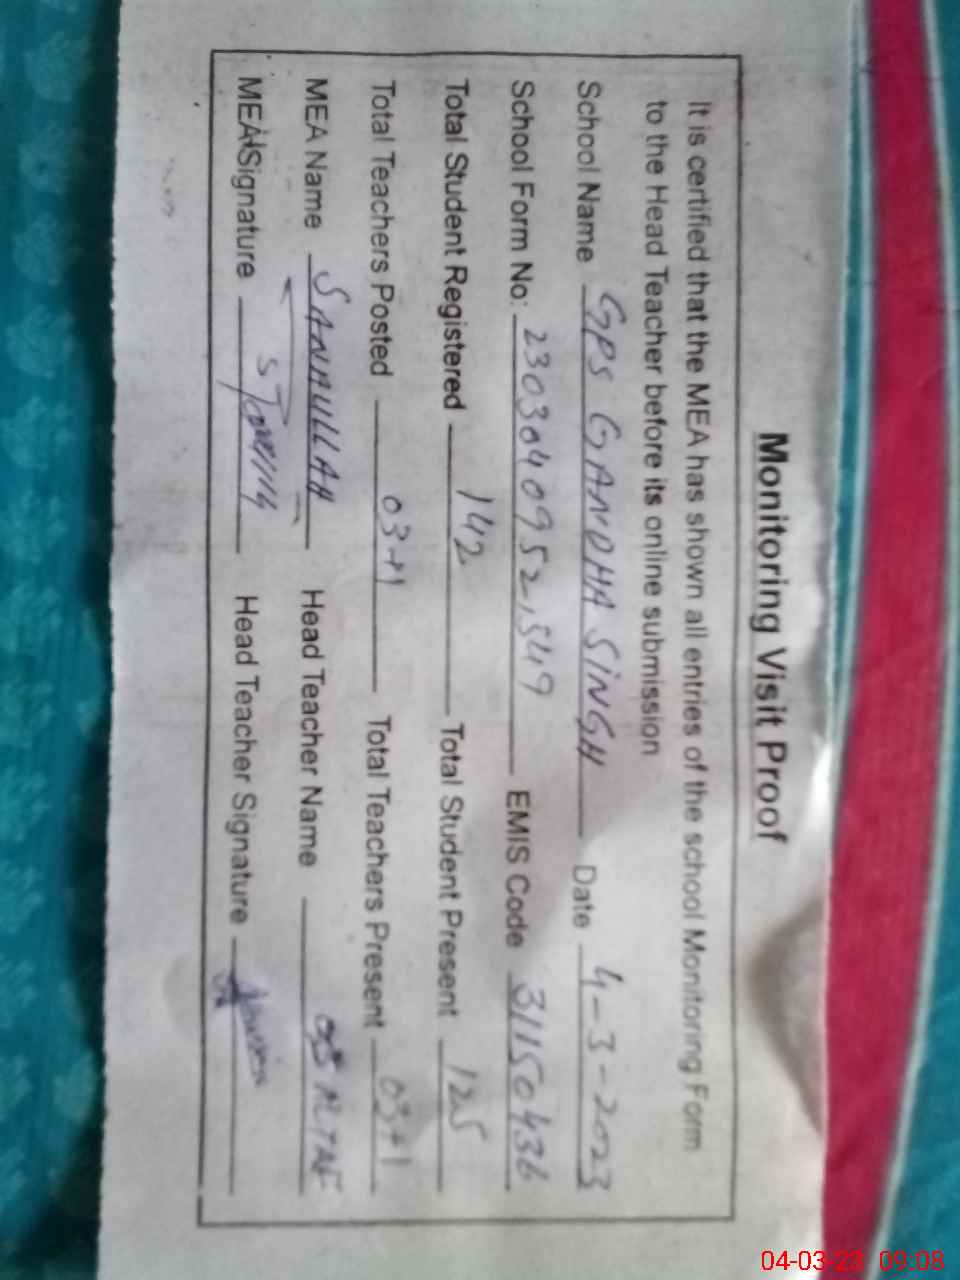 Monitoring Visit Proof
It is certified that the MEA has shown all entries of the school Monitoring Form
to the Head Teacher before its online submission
School Name GPS GANDHA SINGH Date 4-3-2023
School Form No: 2303040952,549 EMIS Code 31150436
Total Student Registered 142 Total Student Present 125
Total Teachers Posted 03+1 Total Teachers Present 03+1
MEA Name SANAULLAH Head Teacher Name ALTAF
MEA Signature Head Teacher Signature
04-03-23 09:08